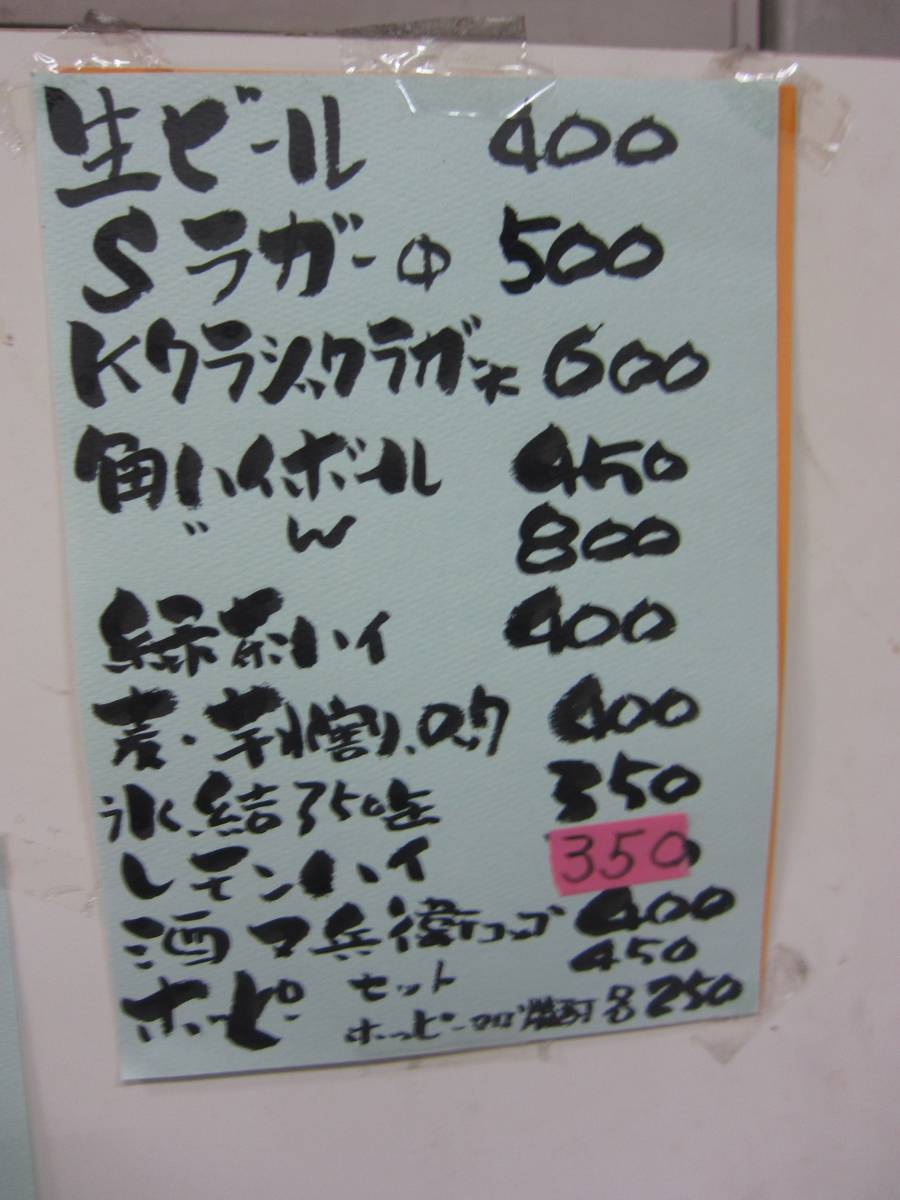 生ビール 400
Sラガー中 500
Kクラシックラガー大 600
角ハイボール 450
〃 W 800
緑茶ハイ 400
麦・芋水割ロック 400
氷結350缶 350
レモンハイ 350
酒 マ兵衛コップ 400
ホッピー セット 450
ホッピー 焼酎 各250